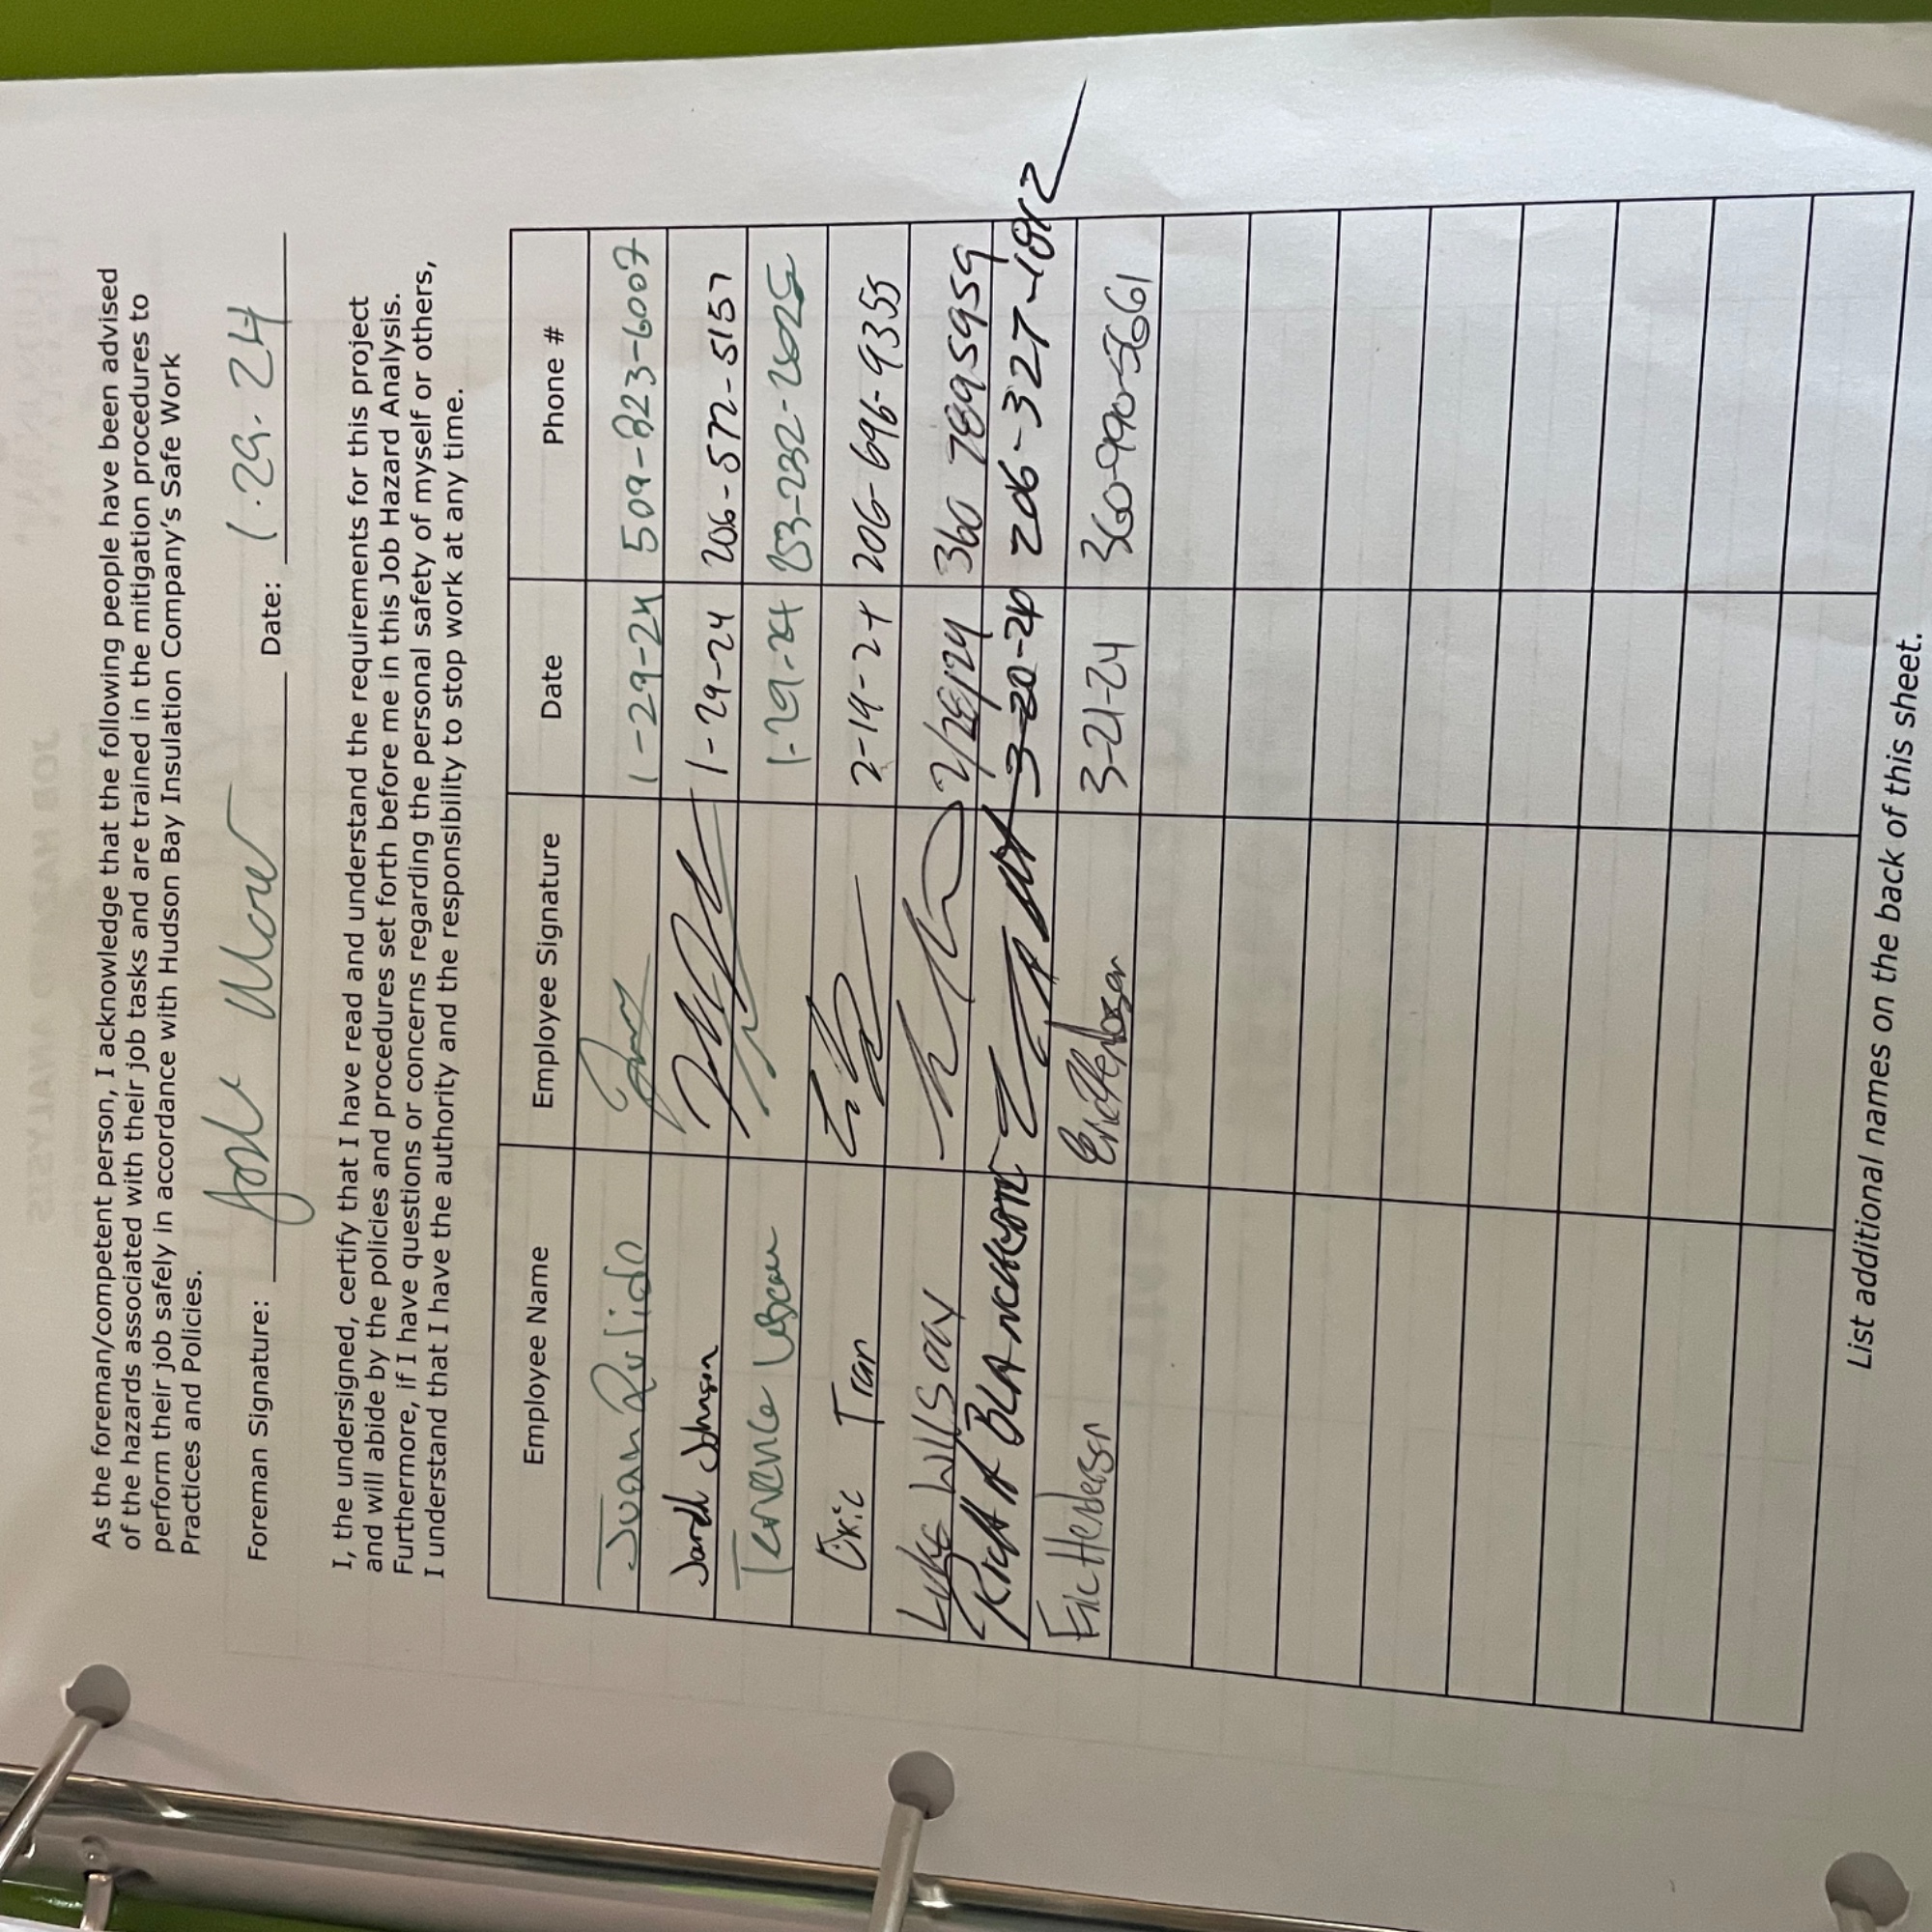 As the foreman/competent person, I acknowledge that the following people have been advised
of the hazards associated with their job tasks and are trained in the mitigation procedures to
perform their job safely in accordance with Hudson Bay Insulation Company's Safe Work
Practices and Policies.
Foreman Signature: Date: 1.29.24
I, the undersigned, certify that I have read and understand the requirements for this project
and will abide by the policies and procedures set forth before me in this Job Hazard Analysis.
Furthermore, if I have questions or concerns regarding the personal safety of myself or others,
I understand that I have the authority and the responsibility to stop work at any time.
Employee Name Employee Signature Date Phone #
Juan Pulido 1-29-24 509-823-6007
Johnson 1-29-24 206-572-5157
Terrence 1-29-24 253-232-
Eric Tran 2-14-24 206-696-9355
Luke Wilson 2/28/24 360 7895959
Rich A 3-20-24 206-327-
Eric Henderson Eric Henderson 3-21-24 360-990-5661
List additional names on the back of this sheet.
JOB HAZARD ANALYSIS